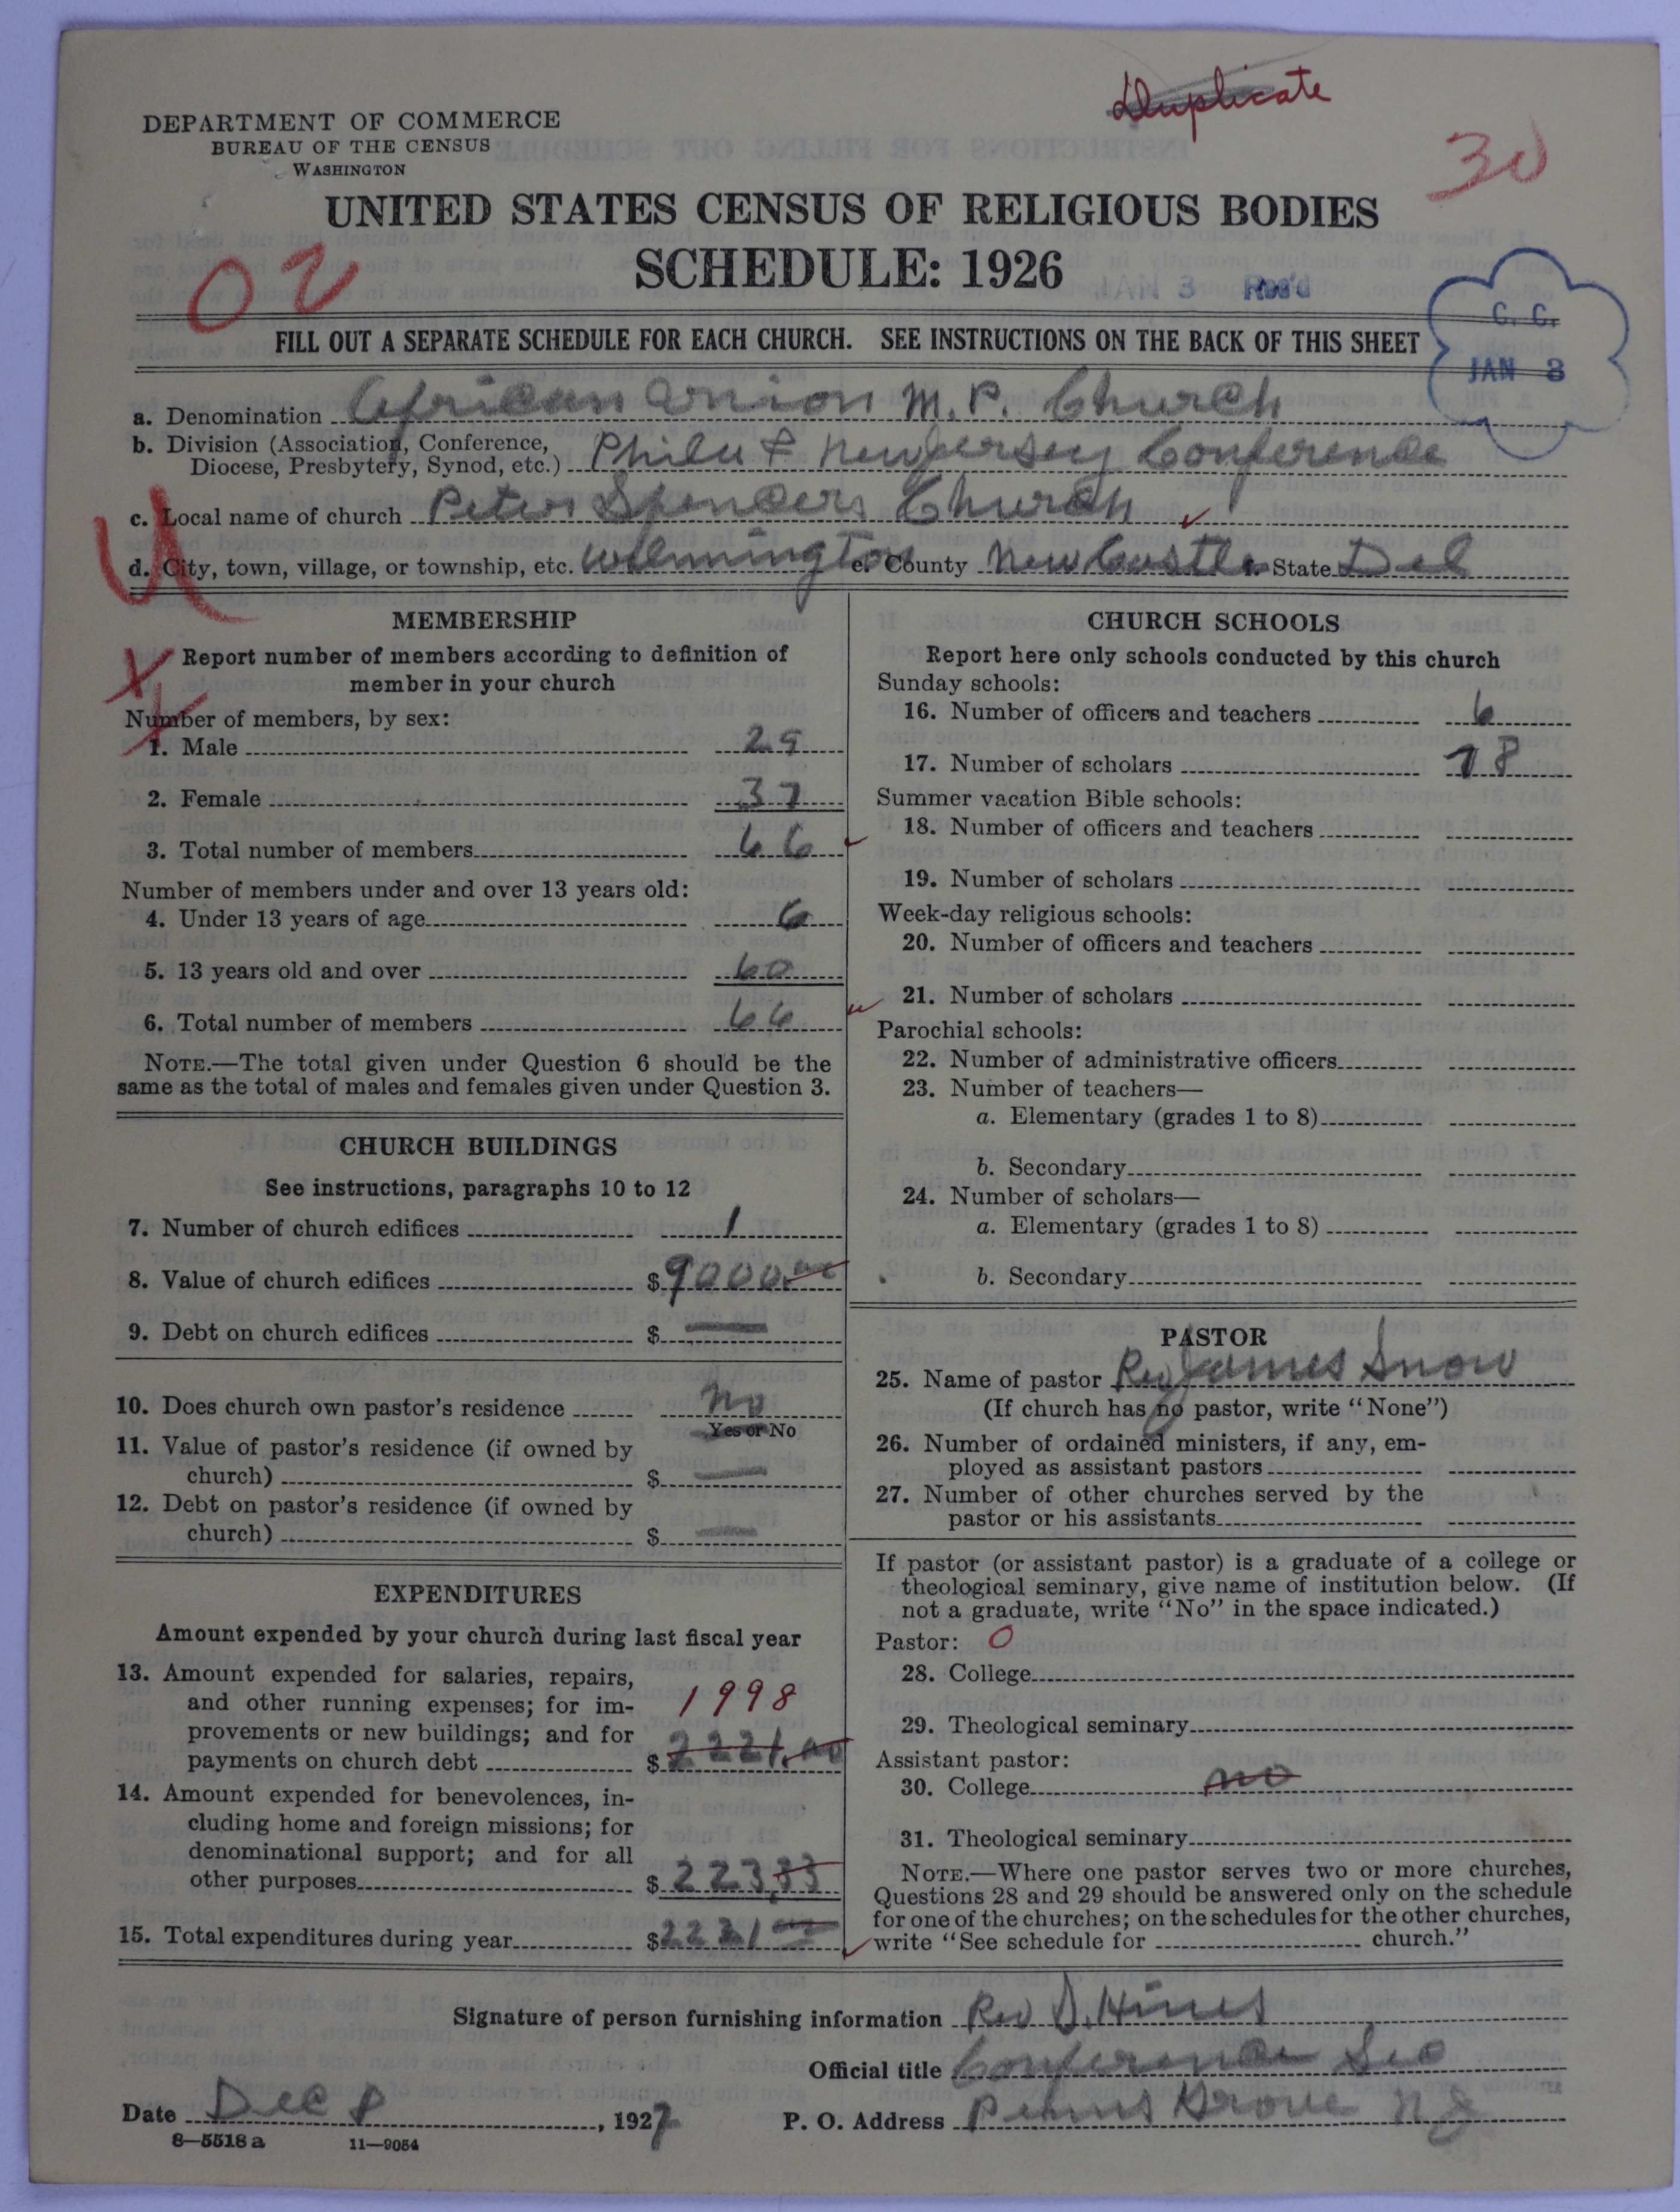 Duplicate
DEPARTMENT OF COMMERCE
BUREAU OF THE CENSUS
WASHINGTON
30
UNITED STATES CENSUS OF RELIGIOUS BODIES
SCHEDULE: 1926
02
JAN 3 Rec'd
C. C.
JAN 3
FILL OUT A SEPARATE SCHEDULE FOR EACH CHURCH. SEE INSTRUCTIONS ON THE BACK OF THIS SHEET
a. Denomination African Union M. P. Church
b. Division (Association, Conference,
Diocese, Presbytery, Synod, etc.) Phila & New Jersey Conference
c. Local name of church Peter Spencers Church
d. City, town, village, or township, etc. Wilmington e. County New Castle State Del
MEMBERSHIP
Report number of members according to definition of
member in your church
Number of members, by sex:
1. Male 29
2. Female 37
3. Total number of members 66
Number of members under and over 13 years old:
4. Under 13 years of age 6
5. 13 years old and over 60
6. Total number of members 66
NOTE.—The total given under Question 6 should be the
same as the total of males and females given under Question 3.
CHURCH BUILDINGS
See instructions, paragraphs 10 to 12
7. Number of church edifices 1
8. Value of church edifices $9000.00
9. Debt on church edifices $ —
10. Does church own pastor's residence No
Yes or No
11. Value of pastor's residence (if owned by
church) $ —
12. Debt on pastor's residence (if owned by
church) $ —
EXPENDITURES
Amount expended by your church during last fiscal year
13. Amount expended for salaries, repairs,
and other running expenses; for im-
1998
provements or new buildings; and for
payments on church debt $2221.00
14. Amount expended for benevolences, in-
cluding home and foreign missions; for
denominational support; and for all
other purposes $223.33
15. Total expenditures during year $2221
CHURCH SCHOOLS
Report here only schools conducted by this church
Sunday schools:
16. Number of officers and teachers 6
17. Number of scholars 18
Summer vacation Bible schools:
18. Number of officers and teachers
19. Number of scholars
Week-day religious schools:
20. Number of officers and teachers
21. Number of scholars
Parochial schools:
22. Number of administrative officers
23. Number of teachers—
a. Elementary (grades 1 to 8)
b. Secondary
24. Number of scholars—
a. Elementary (grades 1 to 8)
b. Secondary
PASTOR
25. Name of pastor Rev James Snow
(If church has no pastor, write "None")
26. Number of ordained ministers, if any, em-
ployed as assistant pastors
27. Number of other churches served by the
pastor or his assistants
If pastor (or assistant pastor) is a graduate of a college or
theological seminary, give name of institution below. (If
not a graduate, write "No" in the space indicated.)
Pastor: O
28. College
29. Theological seminary
Assistant pastor:
30. College no
31. Theological seminary
NOTE.—Where one pastor serves two or more churches,
Questions 28 and 29 should be answered only on the schedule
for one of the churches; on the schedules for the other churches,
write "See schedule for church."
Signature of person furnishing information Rev D. Hines
Official title Conference Sec
Date Dec 8, 1927
P. O. Address Penns Grove N J
8—5518 a 11—9054